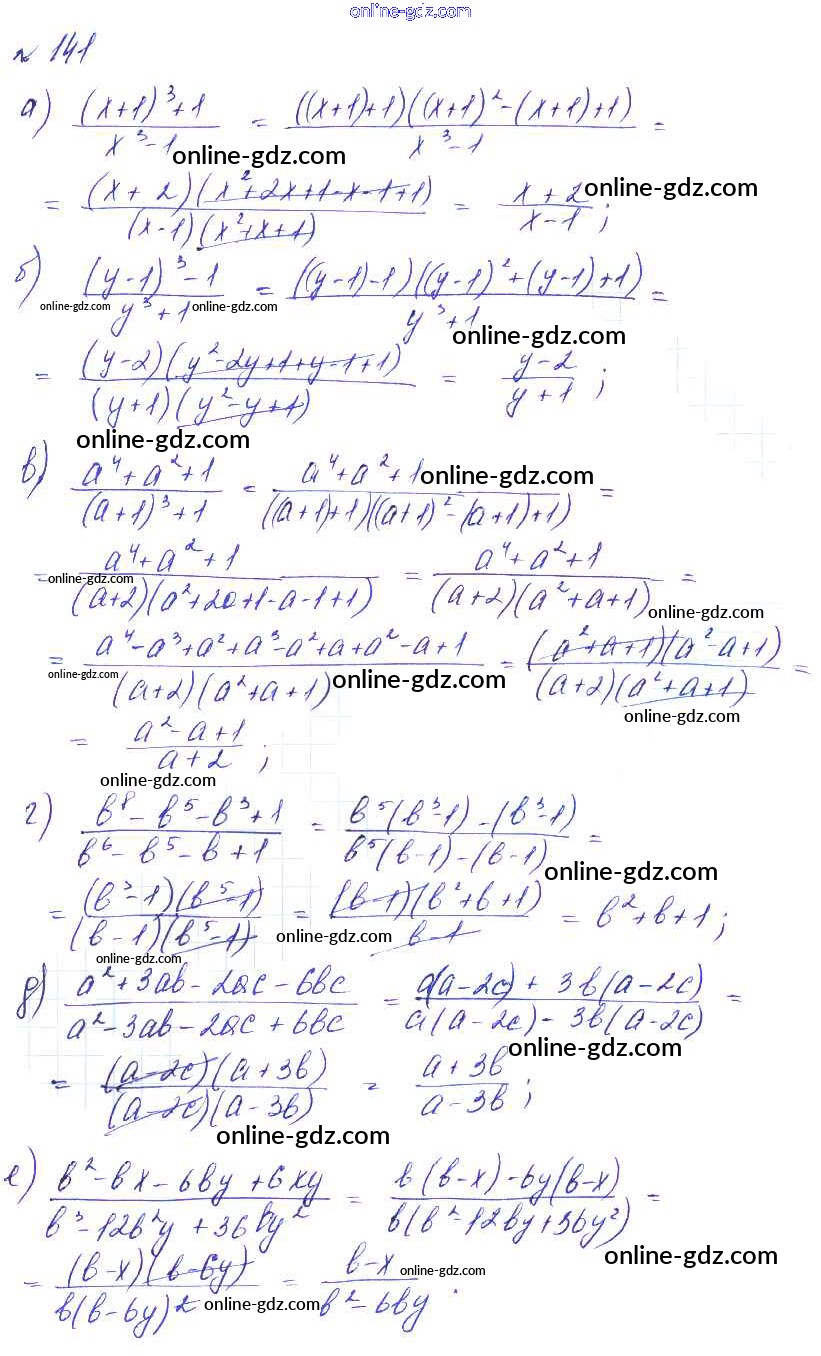 online-gdz.com
№ 141
а) ((x+1)³+1)/(x³-1) = (((x+1)+1)((x+1)²-(x+1)+1))/(x³-1) =
online-gdz.com
= ((x+2)(x²+2x+1-x-1+1))/((x-1)(x²+x+1)) = (x+2)/(x-1);
online-gdz.com
б) ((y-1)³-1)/(y³+1) = (((y-1)-1)((y-1)²+(y-1)+1))/(y³+1) =
online-gdz.com online-gdz.com
online-gdz.com
= ((y-2)(y²-2y+1+y-1+1))/((y+1)(y²-y+1)) = (y-2)/(y+1);
online-gdz.com
в) (a⁴+a²+1)/((a+1)³+1) = (a⁴+a²+1)/(((a+1)+1)((a+1)²-(a+1)+1)) =
online-gdz.com
= (a⁴+a²+1)/((a+2)(a²+2a+1-a-1+1)) = (a⁴+a²+1)/((a+2)(a²+a+1)) =
online-gdz.com
online-gdz.com
= (a⁴-a³+a²+a³-a²+a+a²-a+1)/((a+2)(a²+a+1)) = ((a²+a+1)(a²-a+1))/((a+2)(a²+a+1)) =
online-gdz.com online-gdz.com
online-gdz.com
= (a²-a+1)/(a+2);
online-gdz.com
г) (b⁸-b⁵-b³+1)/(b⁶-b⁵-b+1) = (b⁵(b³-1)-(b³-1))/(b⁵(b-1)-(b-1)) =
online-gdz.com
= ((b³-1)(b⁵-1))/((b-1)(b⁵-1)) = ((b-1)(b²+b+1))/(b-1) = b²+b+1;
online-gdz.com
online-gdz.com
д) (a²+3ab-2ac-6bc)/(a²-3ab-2ac+6bc) = (a(a-2c)+3b(a-2c))/(a(a-2c)-3b(a-2c)) =
online-gdz.com
= ((a-2c)(a+3b))/((a-2c)(a-3b)) = (a+3b)/(a-3b);
online-gdz.com
е) (b²-bx-6by+6xy)/(b³-12b²y+36by²) = (b(b-x)-6y(b-x))/(b(b²-12by+36y²)) =
online-gdz.com
= ((b-x)(b-6y))/(b(b-6y)²) = (b-x)/(b²-6by).
online-gdz.com
online-gdz.com